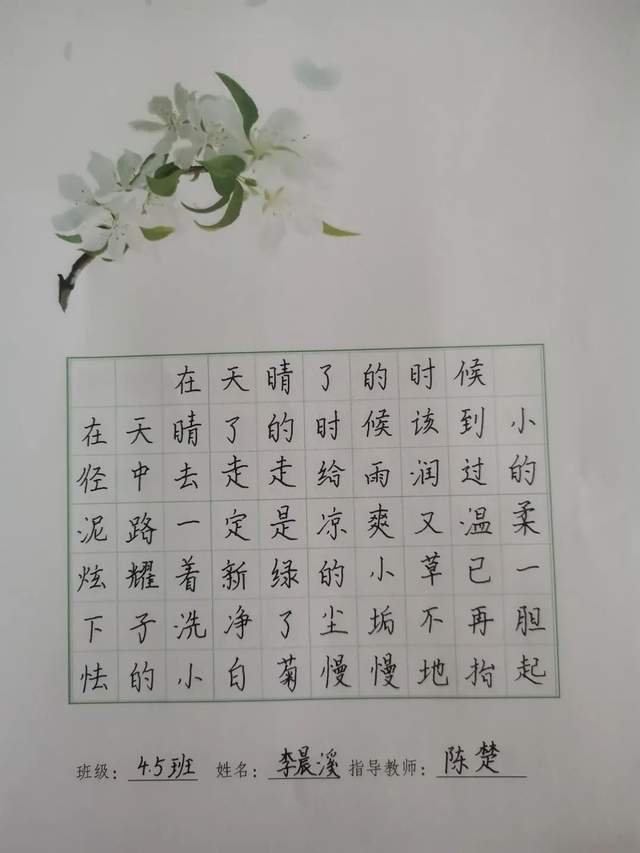 在天晴了的时候
在天晴了的时候该到小
径中去走走给雨润过的
泥路一定是凉爽又温柔
炫耀着新绿的小草已一
下子洗净了尘垢不再胆
怯的小白菊慢慢地抬起
班级：4.5班 姓名：李晨溪 指导教师：陈楚